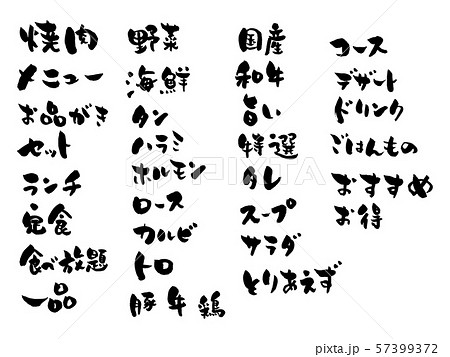 焼肉
メニュー
お品がき
セット
ランチ
定食
食べ放題
一品
野菜
海鮮
タン
ハラミ
ホルモン
ロース
カルビ
トロ
豚 牛 鶏
国産
和牛
旨い
特選
タレ
スープ
サラダ
とりあえず
コース
デザート
ドリンク
ごはんもの
おすすめ
お得
pixta.jp - 57399372